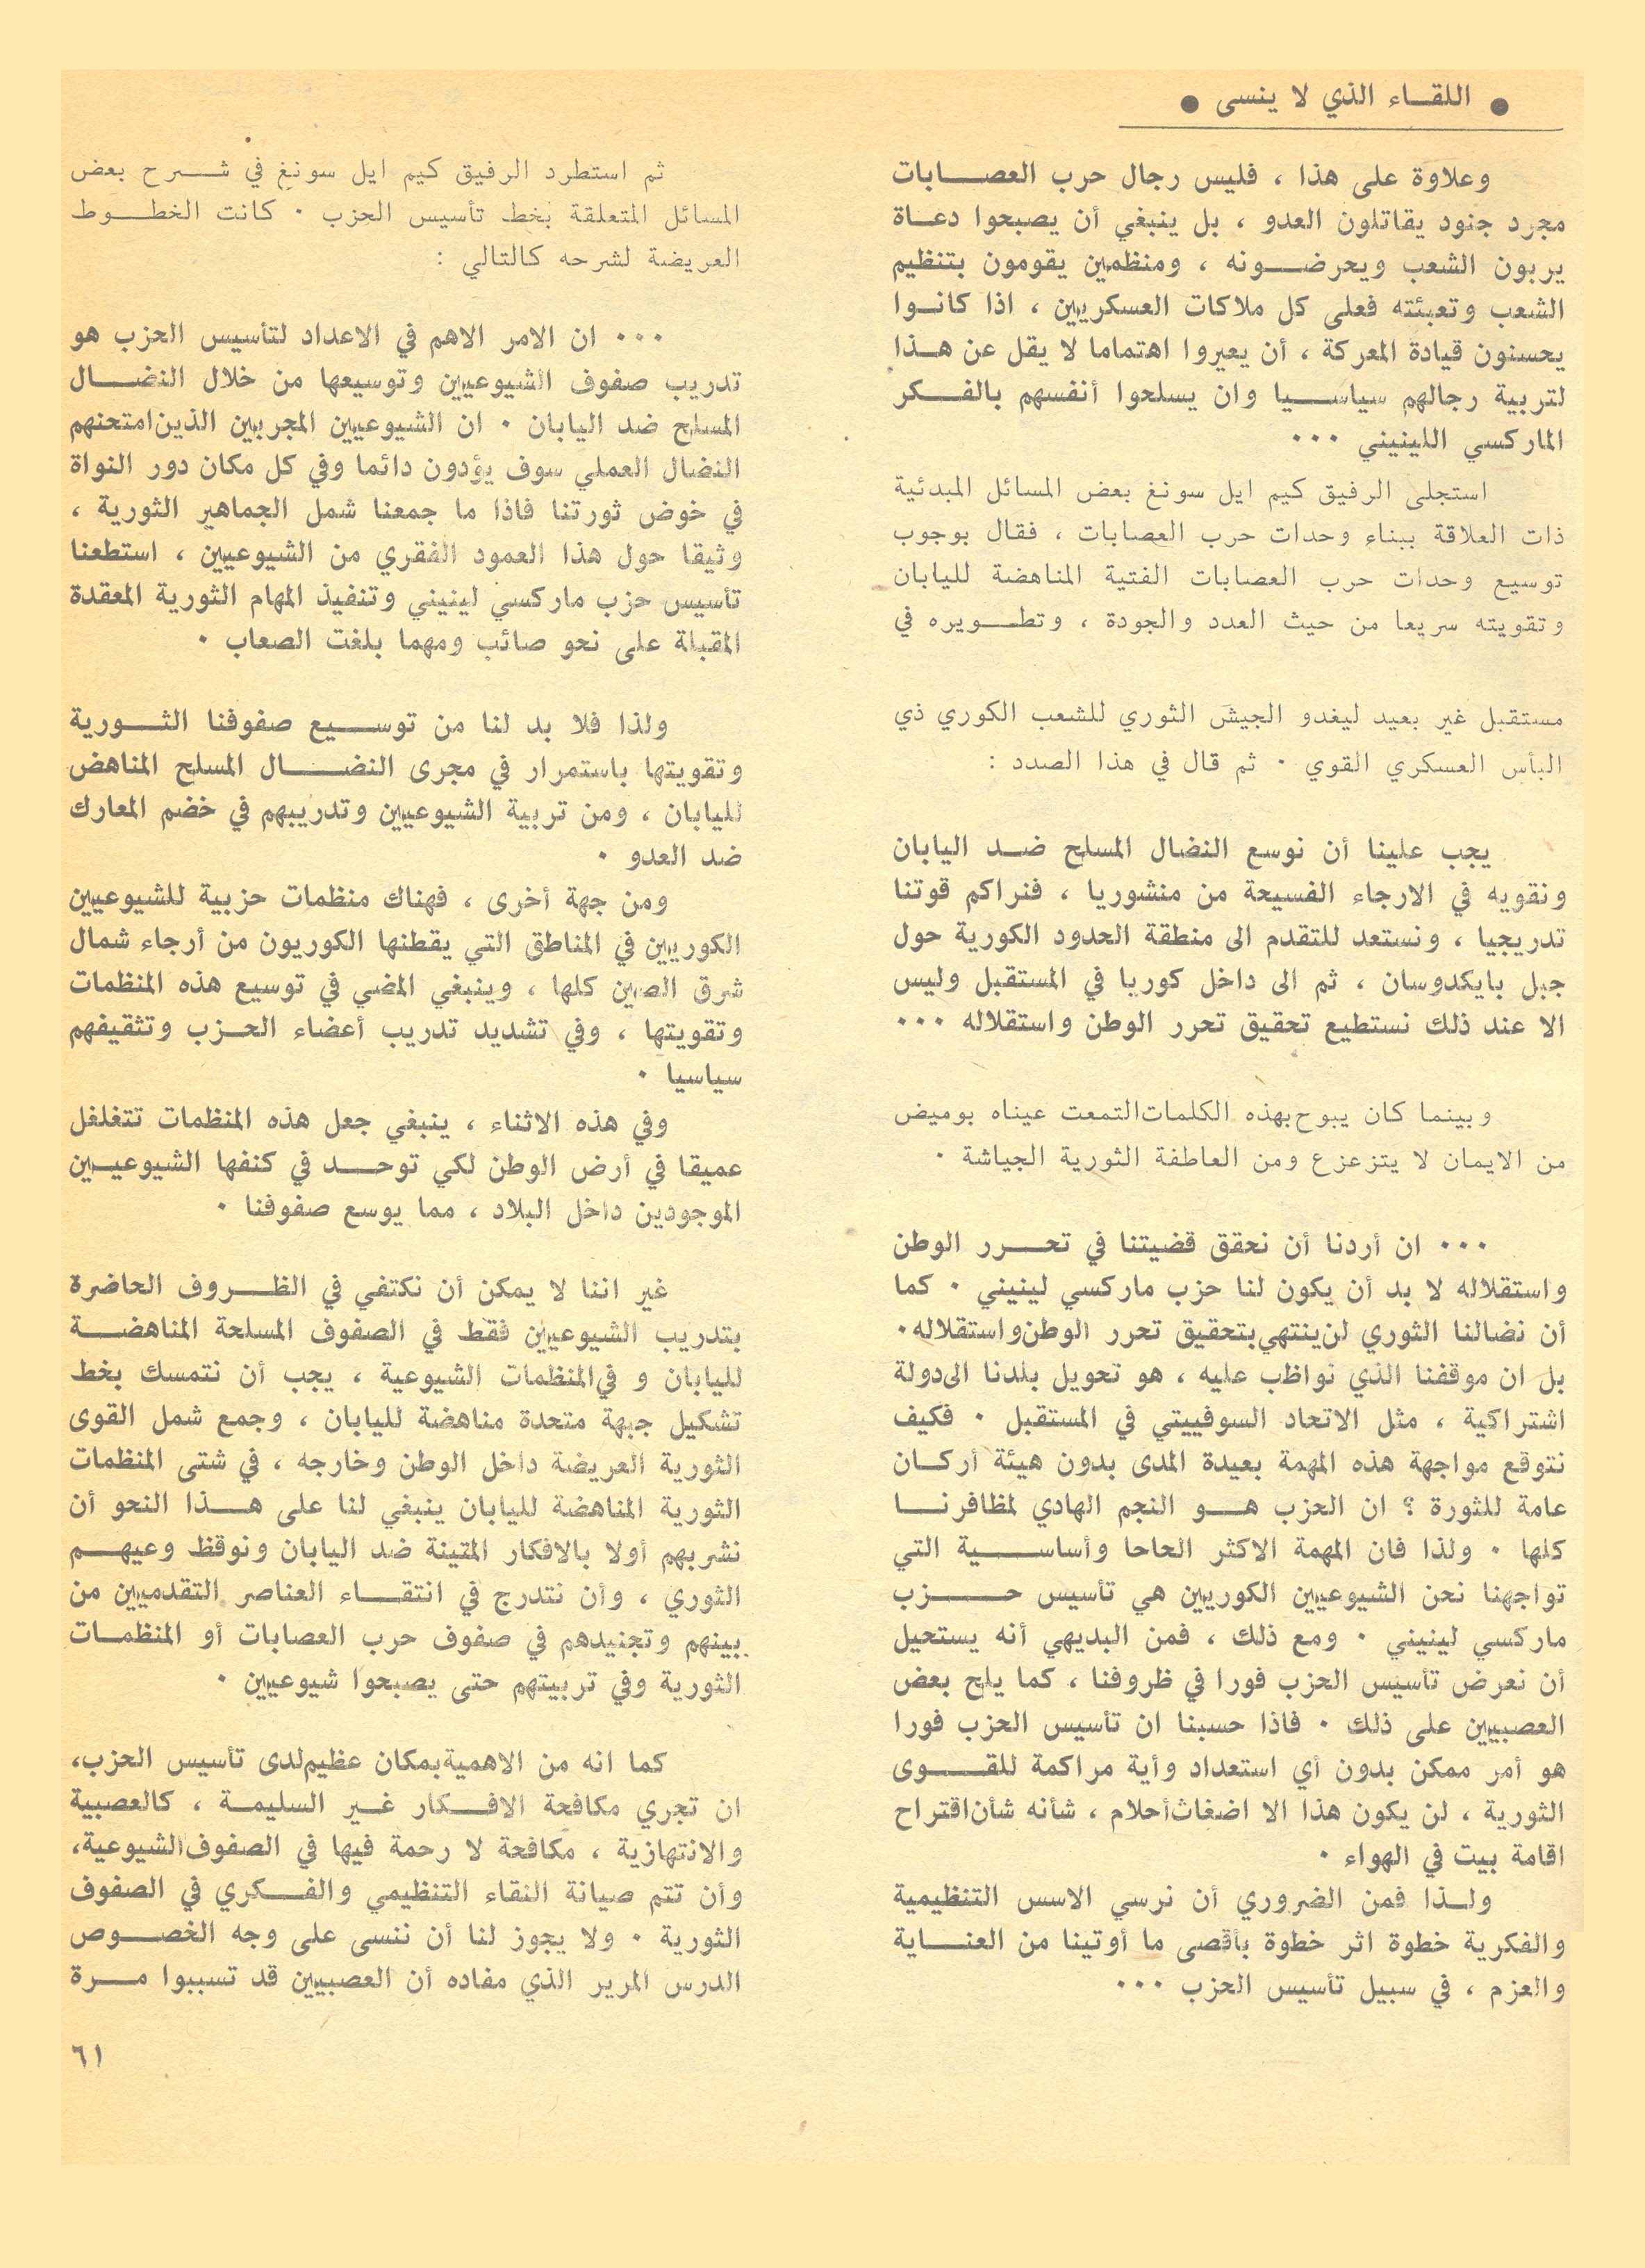 ● اللقاء الذي لا ينسى ●
وعلاوة على هذا ، فليس رجال حرب العصابات
مجرد جنود يقاتلون العدو ، بل ينبغي أن يصبحوا دعاة
يربون الشعب ويحرضونه ، ومنظمين يقومون بتنظيم
الشعب وتعبئته فعلى كل ملاكات العسكريين ، اذا كانوا
يحسنون قيادة المعركة ، أن يعيروا اهتماما لا يقل عن هذا
لتربية رجالهم سياسيا وان يسلحوا أنفسهم بالفكر
الماركسي اللينيني ٠٠٠
استجلى الرفيق كيم ايل سونغ بعض المسائل المبدئية
ذات العلاقة ببناء وحدات حرب العصابات ، فقال بوجوب
توسيع وحدات حرب العصابات الفتية المناهضة لليابان
وتقويته سريعا من حيث العدد والجودة ، وتطويره في
مستقبل غير بعيد ليغدو الجيش الثوري للشعب الكوري ذي
البأس العسكري القوي ٠ ثم قال في هذا الصدد :
يجب علينا أن نوسع النضال المسلح ضد اليابان
ونقويه في الارجاء الفسيحة من منشوريا ، فنراكم قوتنا
تدريجيا ، ونستعد للتقدم الى منطقة الحدود الكورية حول
جبل بايكدوسان ، ثم الى داخل كوريا في المستقبل وليس
الا عند ذلك نستطيع تحقيق تحرر الوطن واستقلاله ٠٠٠
وبينما كان يبوح بهذه الكلمات التمعت عيناه بوميض
من الايمان لا يتزعزع ومن العاطفة الثورية الجياشة ٠
٠٠٠ ان أردنا أن نحقق قضيتنا في تحرر الوطن
واستقلاله لا بد أن يكون لنا حزب ماركسي لينيني ٠ كما
أن نضالنا الثوري لن ينتهي بتحقيق تحرر الوطن واستقلاله ٠
بل ان موقفنا الذي نواظب عليه ، هو تحويل بلدنا الى دولة
اشتراكية ، مثل الاتحاد السوفييتي في المستقبل ٠ فكيف
نتوقع مواجهة هذه المهمة بعيدة المدى بدون هيئة أركان
عامة للثورة ؟ ان الحزب هو النجم الهادي لمظافرنا
كلها ٠ ولذا فان المهمة الاكثر الحاحا وأساسية التي
تواجهنا نحن الشيوعيين الكوريين هي تأسيس حزب
ماركسي لينيني ٠ ومع ذلك ، فمن البديهي أنه يستحيل
أن نعرض تأسيس الحزب فورا في ظروفنا ، كما يلح بعض
العصبيين على ذلك ٠ فاذا حسبنا ان تأسيس الحزب فورا
هو أمر ممكن بدون أي استعداد وأية مراكمة للقوى
الثورية ، لن يكون هذا الا اضغاث أحلام ، شأنه شأن اقتراح
اقامة بيت في الهواء ٠
ولذا فمن الضروري أن نرسي الاسس التنظيمية
والفكرية خطوة اثر خطوة بأقصى ما أوتينا من العناية
والعزم ، في سبيل تأسيس الحزب ٠٠٠
ثم استطرد الرفيق كيم ايل سونغ في شرح بعض
المسائل المتعلقة بخط تأسيس الحزب ٠ كانت الخطوط
العريضة لشرحه كالتالي :
٠٠٠ ان الامر الاهم في الاعداد لتأسيس الحزب هو
تدريب صفوف الشيوعيين وتوسيعها من خلال النضال
المسلح ضد اليابان ٠ ان الشيوعيين المجربين الذين امتحنهم
النضال العملي سوف يؤدون دائما وفي كل مكان دور النواة
في خوض ثورتنا فاذا ما جمعنا شمل الجماهير الثورية ،
وثيقا حول هذا العمود الفقري من الشيوعيين ، استطعنا
تأسيس حزب ماركسي لينيني وتنفيذ المهام الثورية المعقدة
المقبلة على نحو صائب ومهما بلغت الصعاب ٠
ولذا فلا بد لنا من توسيع صفوفنا الثورية
وتقويتها باستمرار في مجرى النضال المسلح المناهض
لليابان ، ومن تربية الشيوعيين وتدريبهم في خضم المعارك
ضد العدو ٠
ومن جهة أخرى ، فهناك منظمات حزبية للشيوعيين
الكوريين في المناطق التي يقطنها الكوريون من أرجاء شمال
شرق الصين كلها ، وينبغي المضي في توسيع هذه المنظمات
وتقويتها ، وفي تشديد تدريب أعضاء الحزب وتثقيفهم
سياسيا ٠
وفي هذه الاثناء ، ينبغي جعل هذه المنظمات تتغلغل
عميقا في أرض الوطن لكي توحد في كنفها الشيوعيين
الموجودين داخل البلاد ، مما يوسع صفوفنا ٠
غير اننا لا يمكن أن نكتفي في الظروف الحاضرة
بتدريب الشيوعيين فقط في الصفوف المسلحة المناهضة
لليابان و في المنظمات الشيوعية ، يجب أن نتمسك بخط
تشكيل جبهة متحدة مناهضة لليابان ، وجمع شمل القوى
الثورية العريضة داخل الوطن وخارجه ، في شتى المنظمات
الثورية المناهضة لليابان ينبغي لنا على هذا النحو أن
نشربهم أولا بالافكار المتينة ضد اليابان ونوقظ وعيهم
الثوري ، وأن نتدرج في انتقاء العناصر التقدميين من
بينهم وتجنيدهم في صفوف حرب العصابات أو المنظمات
الثورية وفي تربيتهم حتى يصبحوا شيوعيين ٠
كما انه من الاهمية بمكان عظيم لدى تأسيس الحزب،
ان تجري مكافحة الافكار غير السليمة ، كالعصبية
والانتهازية ، مكافحة لا رحمة فيها في الصفوف الشيوعية،
وأن تتم صيانة النقاء التنظيمي والفكري في الصفوف
الثورية ٠ ولا يجوز لنا أن ننسى على وجه الخصوص
الدرس المرير الذي مفاده أن العصبيين قد تسببوا مرة
٦١